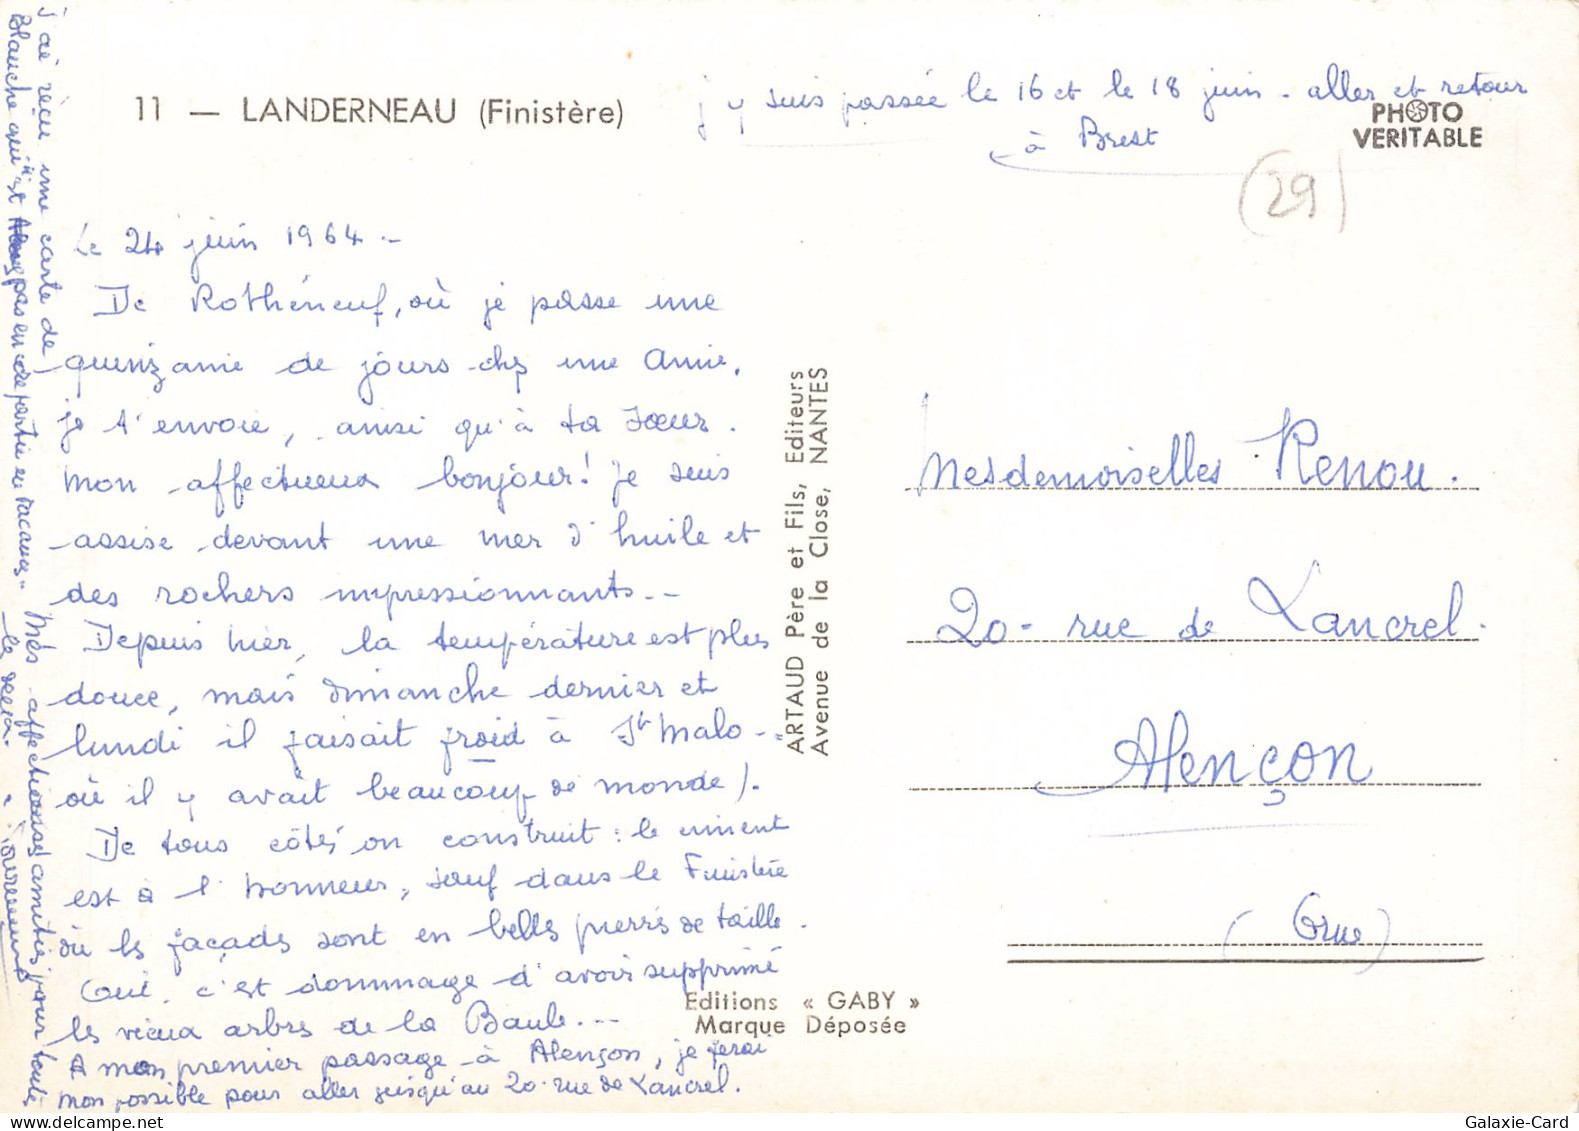 11 — LANDERNEAU (Finistère)
j'y suis passée le 16 et le 18 juin - aller et retour
à Brest
PHOTO
VERITABLE
(29)
Le 24 juin 1964 -
De Rothéneuf, où je passe une
quinzaine de jours chez une amie,
je t'envoie, ainsi qu'à ta sœur.
mon affectueux bonjour! Je suis
assise devant une mer d'huile et
des rochers impressionnants--
Depuis hier, la température est plus
douce, mais dimanche dernier et
lundi il faisait froid à St Malo--
où il y avait beaucoup de monde).
De tous côtés on construit : le ciment
est à l'honneur, sauf dans le Finistère
où les façades sont en belles pierres de taille.
Oui, c'est dommage d'avoir supprimé
les vieux arbres de la Baule...
A mon premier passage à Alençon, je ferai
mon possible pour aller jusqu'au 20 rue de Lancrel.
J'ai reçu une carte de
Blanche qui "n'est pas encore partie en vacances"
Mes affectueuses amitiés pour toute
ARTAUD Père et Fils, Editeurs
Avenue de la Close, NANTES
Editions « GABY »
Marque Déposée
Mesdemoiselles Renou.
20 - rue de Lancrel.
Alençon
(Orne)
Galaxie-Card